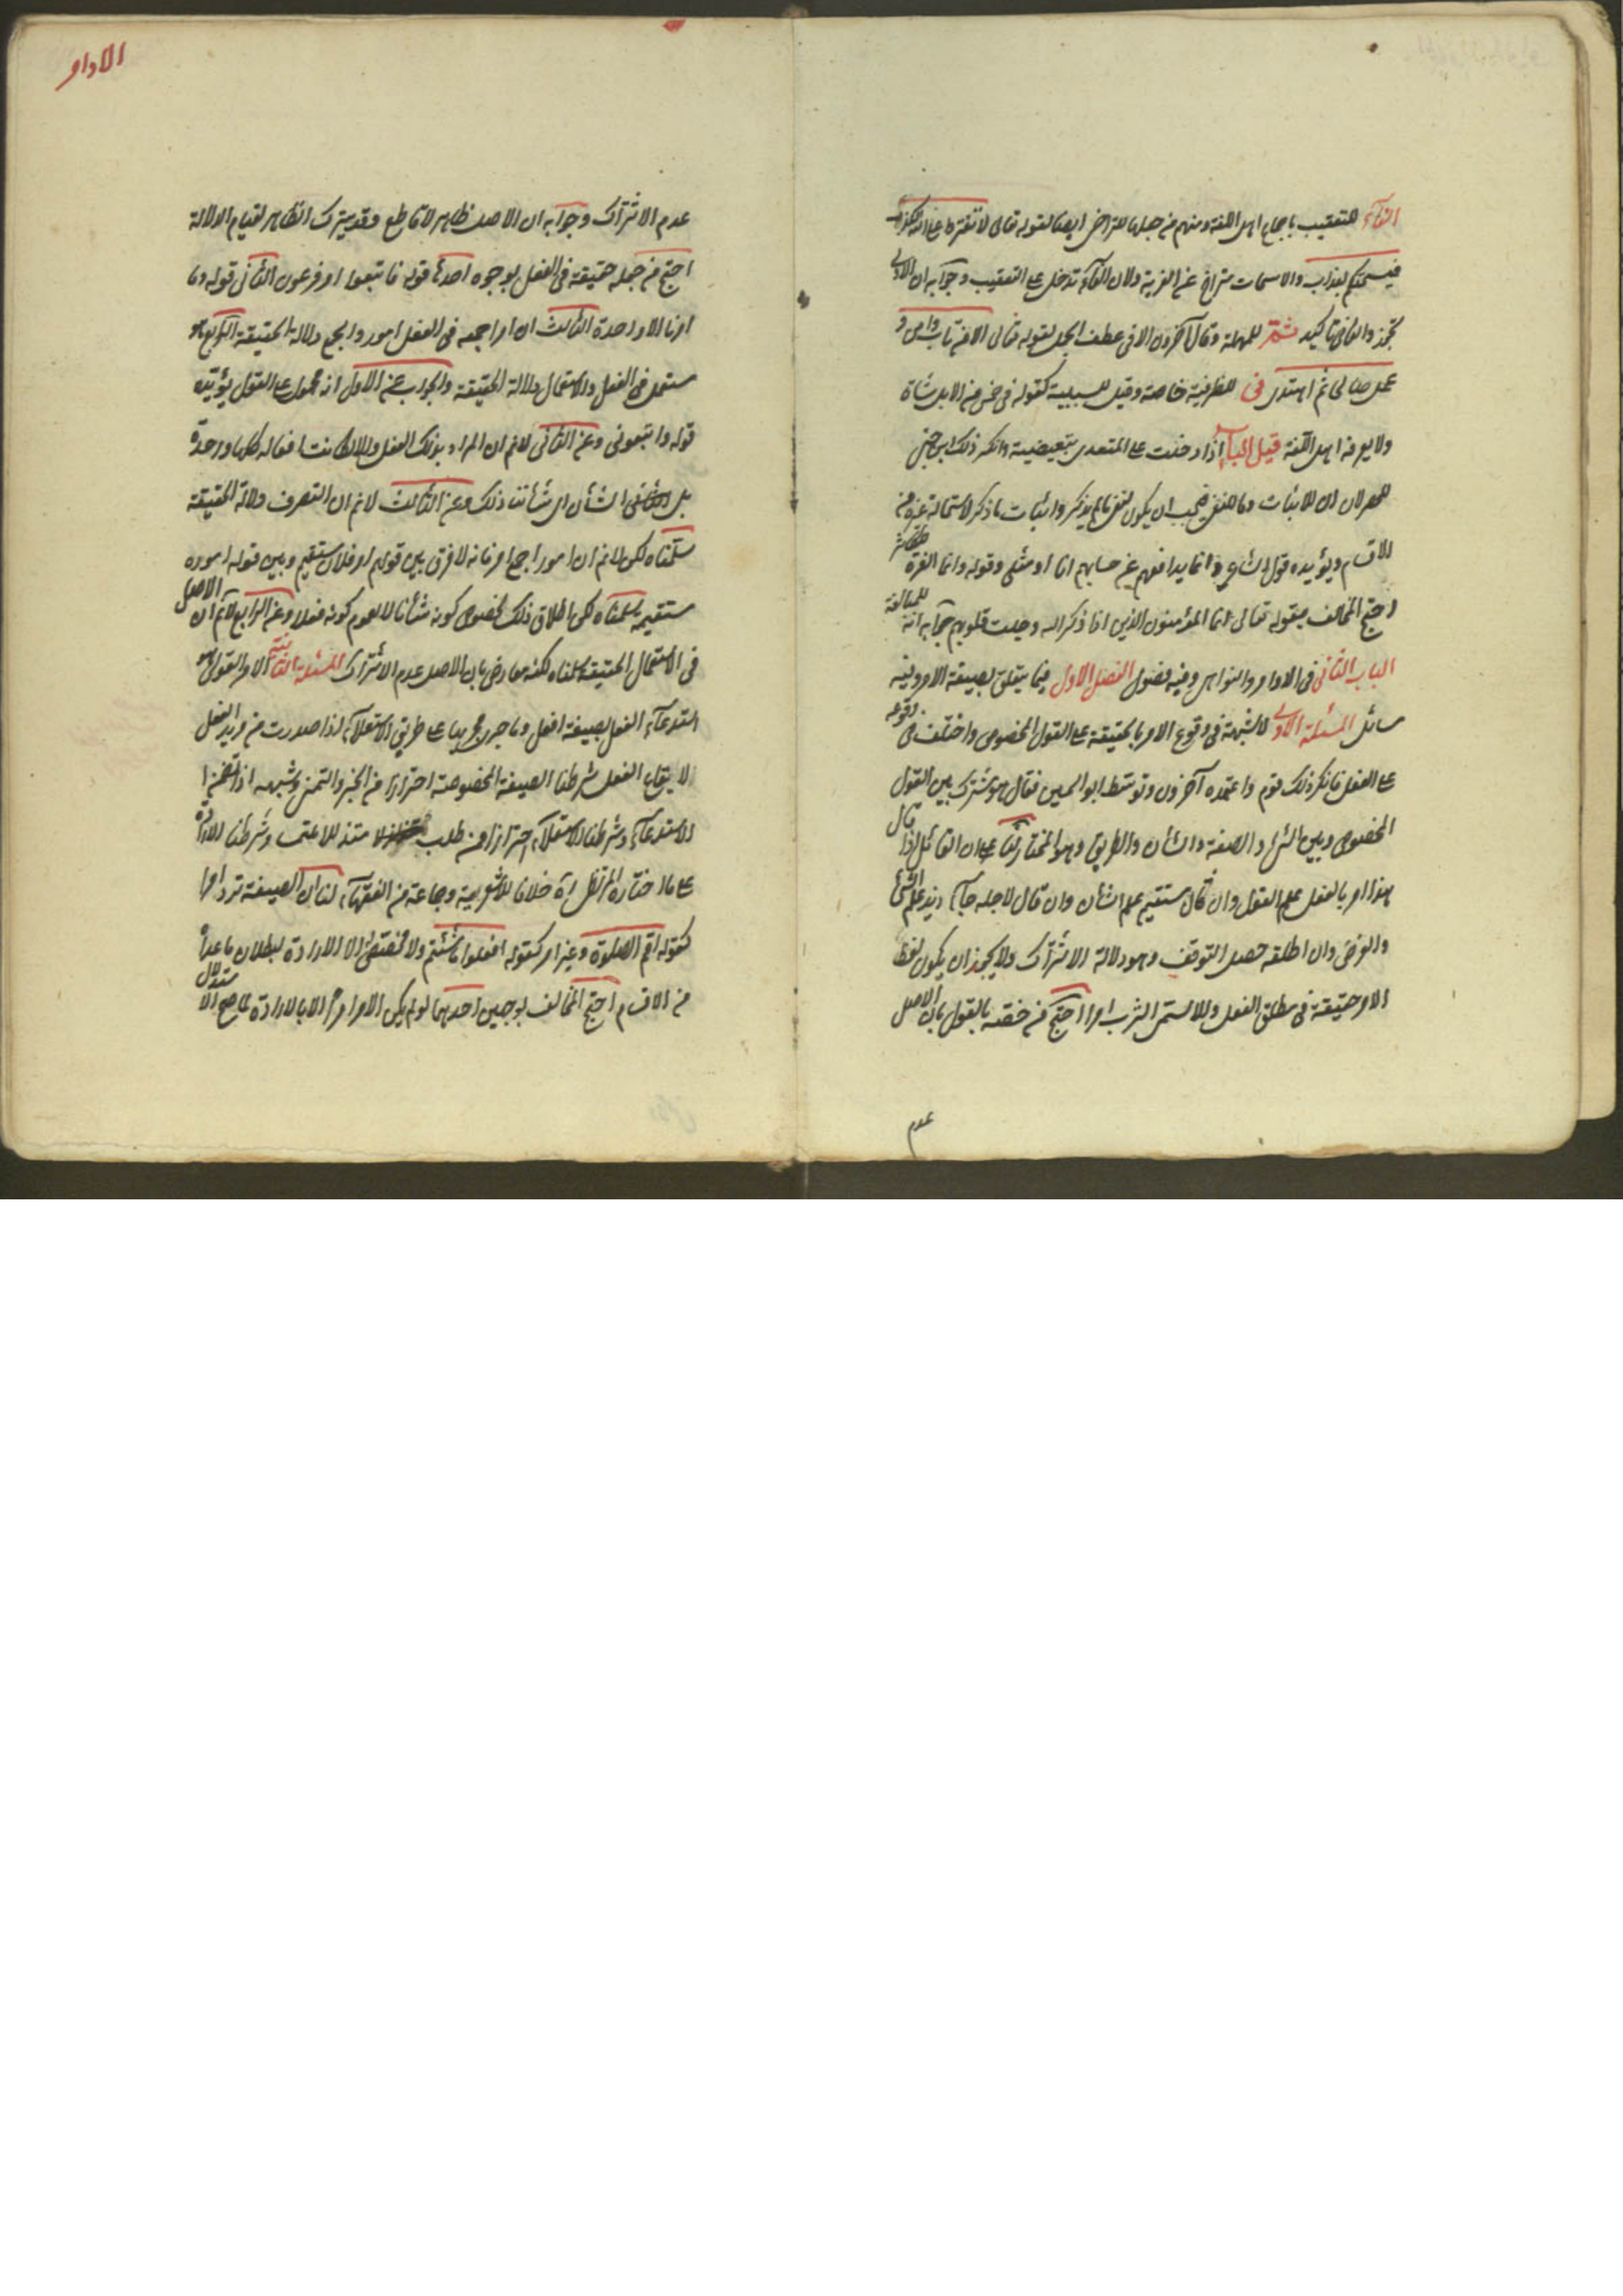 الفآء للتعقيب باجماع اهل اللغة ومنهم من جعلها للتراخي ايضا لقوله تعالى لا تفتروا على الله كذبا
فيسحتكم بعذاب والاسحات متراخ عن الفرية ولان الفآء تدخل على التعقيب وجوابه ان الاول
تجوز والثاني تاكيد ثمّ للمهلة وقال آخرون الا في عطف الجمل لقوله تعالى لمن تاب وامن و
عمل صالحا ثم اهتدى في للظرفية خاصة وقيل للسببية كقوله في خمس من الابل شاة
ولا يعرفه اهل اللغة قيل البآء اذا دخلت على المتعدى تبعيضية وانكر ذلك ابن جني
للحصر لان ان للاثبات وما للنفي فيجب ان يكون لنفي مالم يذكر واثبات ما ذكر لاستحالة غيره من
الاقسام ويؤيده قول الشاعر وانما يدافع عن احسابهم انا او مثلي وقوله وانما العزة للكاثر
احتج المخالف بقوله تعالى انما المؤمنون الذين اذا ذكر الله وجلت قلوبهم جوابه انه للمبالغة
الباب الثاني في الاوامر والنواهي وفيه فصول الفصل الاول فيما يتعلق بصيغة الامر وفيه
مسائل المسئلة الاولى لا شبهة في وقوع الامر بالحقيقة على القول المخصوص واختلف في وقوعه
على الفعل فانكر ذلك قوم واعتمده آخرون وتوسط ابو الحسين فقال هو مشترك بين القول
المخصوص وبين الشئ والصفة والشان والطريق وهو المختار لنا ان القائل اذا قال
هذا امر بالفعل علم القول وان قال مستقيم علم الشان وان قال لاجله جآء زيد علم الشئ
والغرض وان اطلقه حصل التوقف وهو دلالة الاشتراك ولا يجوز ان يكون لفظ
الامر حقيقة في مطلق الفعل والا لسمى الشرب امرا احتج من خصه بالقول بان الاصل
عدم
الاوامر
عدم الاشتراك وجوابه ان الاصل ظاهر لا قاطع وقد يترك الظاهر لقيام الدلالة
احتج من جعله حقيقة في الفعل بوجوه احدها قوله فاتبعوا امر فرعون الثاني قوله وما
امرنا الا واحدة الثالث ان امرا جمعه في الفعل امور والجمع دلالة الحقيقة الرابع انه
مستعمل في الفعل والاستعمال دلالة الحقيقة والجواب عن الاول انه محمول على القول يؤيده
قوله واتبعوني وعن الثاني لا نم ان المراد بذلك الفعل والا لكانت افعاله كلها واحدة
بل الشأن اى شأننا ذلك وعن الثالث لا نم ان التصرف دلالة الحقيقة
سلمناه لكن لا نم ان امورا جمع امر فانه لا فرق بين قولهم امر فلان مستقيم وبين قوله اموره
مستقيمة سلمناه لكن اطلاق ذلك لخصوص كونه شأنا لا لعموم كونه فعلا وعن الرابع لا نم ان الاصل
في الاستعمال الحقيقة سلمناه لكنه معارض بان الاصل عدم الاشتراك المسئلة الثانية الامر القول
استدعآء الفعل بصيغة افعل وما جرى مجريها على طريق الاستعلآء اذا صدرت من مريد الفعل
لايقاع الفعل شرطنا الصيغة المخصوصة احترازا من الخبر والتمني وشبهه اذا تضمن
الاستدعآء وشرطنا الاستعلآء احترازا من طلب وشرطنا الارادة
على ما اختاره المرتضى ره خلافا للاشعرية وجماعة من الفقهآء لنا ان الصيغة ترد امرا
كقوله اقم الصلوة وغير امر كقوله افعلوا ما شئتم ولا مخصص الا الارادة لبطلان ما عداه
من الاقسام احتج المخالف بوجهين احدهما لو لم يكن الامر امرا الا بالارادة لما صح الاستدلال